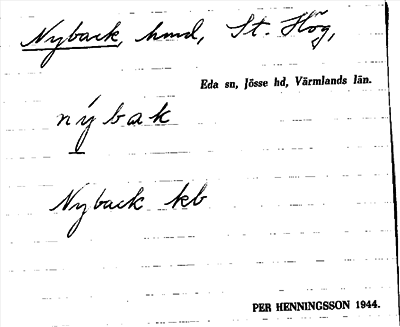 Nyback, hmd, St. Hög,
Eda sn, Jösse hd, Värmlands län.
nýbak
Nyback kb
PER HENNINGSSON 1944.